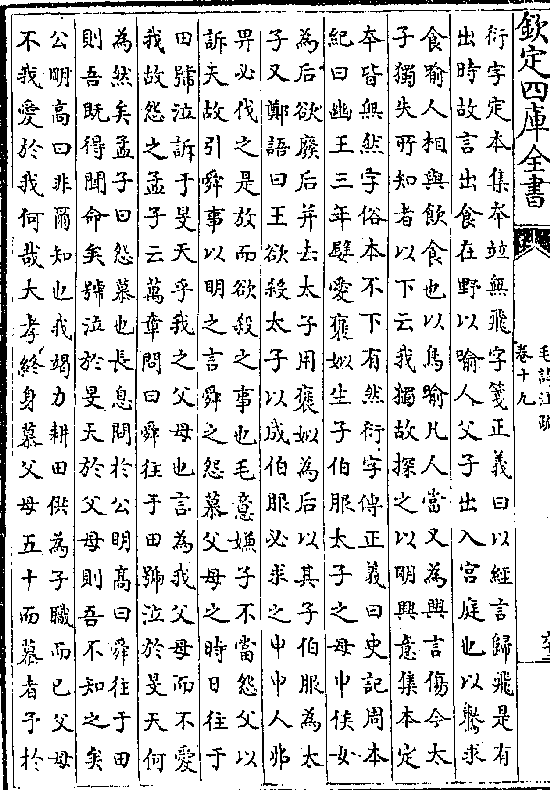 欽定四庫全書
毛詩注疏
卷十九
衍字定本集本並無飛字箋正義曰以經言歸飛是有
出時故言出食在野以喻人父子出入宮庭也以鷽求
食喻人相與飲食也以鳥喻凡人當又為興言傷今太
子獨失所知者以下云我獨故探之以明興意集本定
本皆無然字俗本不下有然衍字傳正義曰史記周本
紀曰幽王三年嬖愛褒姒生子伯服太子之母申侯女
為后欲廢后并去太子用褒姒為后以其子伯服為太
子又鄭語曰王欲殺太子以成伯服必求之申申人弗
畀必伐之是放而欲殺之事也毛意嫌子不當怨父以
訴天故引舜事以明之言舜之怨慕父母之時日往于
田號泣訴于旻天乎我之父母也言為我父母而不愛
我故怨之孟子云萬章問曰舜往于田號泣於旻天何
為然矣孟子曰怨慕也長息問於公明高曰舜往于田
則吾既得聞命矣號泣於旻天於父母則吾不知之矣
公明高曰非爾知也我竭力耕田供為子職而已父母
不我愛於我何哉大孝終身慕父母五十而慕者予於